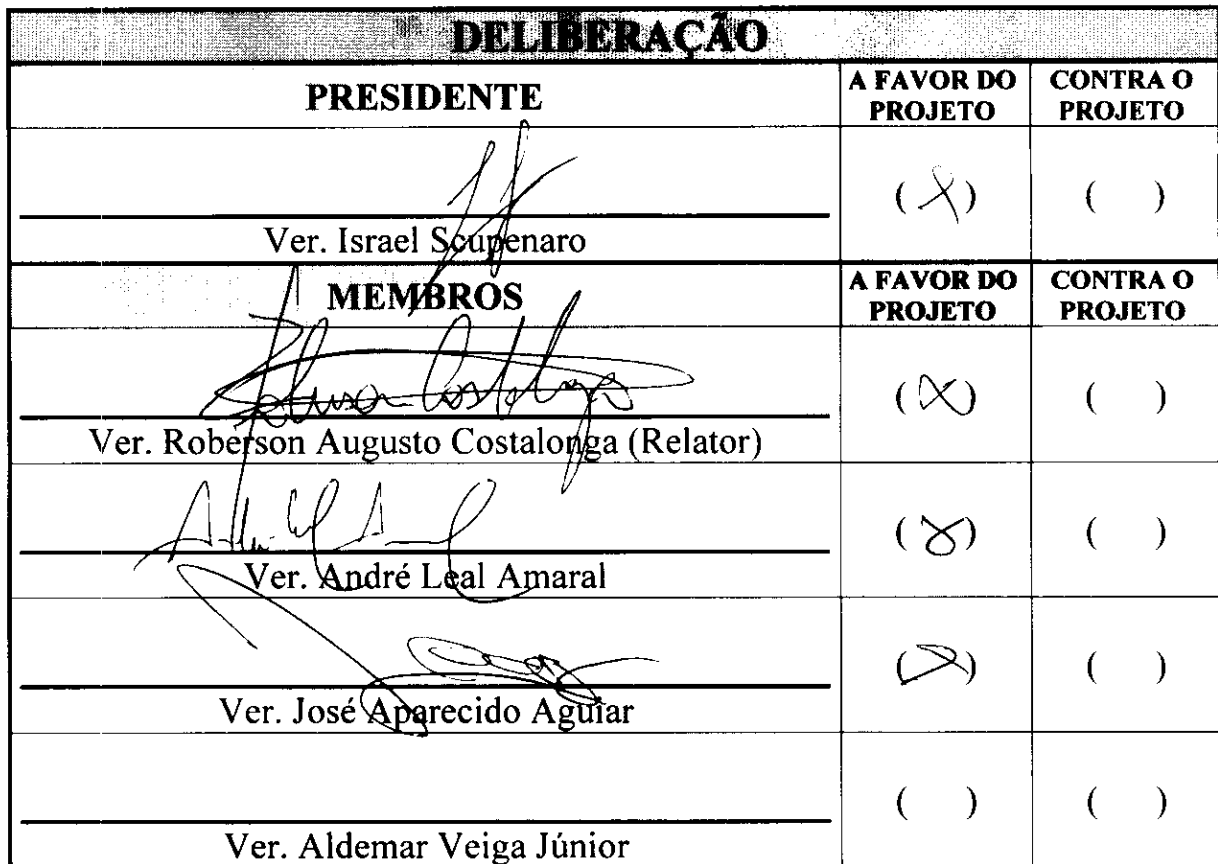 DELIBERAÇÃO
PRESIDENTE
A FAVOR DO PROJETO
CONTRA O PROJETO
Ver. Israel Scupenaro
( X )
( )
MEMBROS
A FAVOR DO PROJETO
CONTRA O PROJETO
Ver. Roberson Augusto Costalonga (Relator)
( X )
( )
Ver. André Leal Amaral
( X )
( )
Ver. José Aparecido Aguiar
( X )
( )
Ver. Aldemar Veiga Júnior
( )
( )